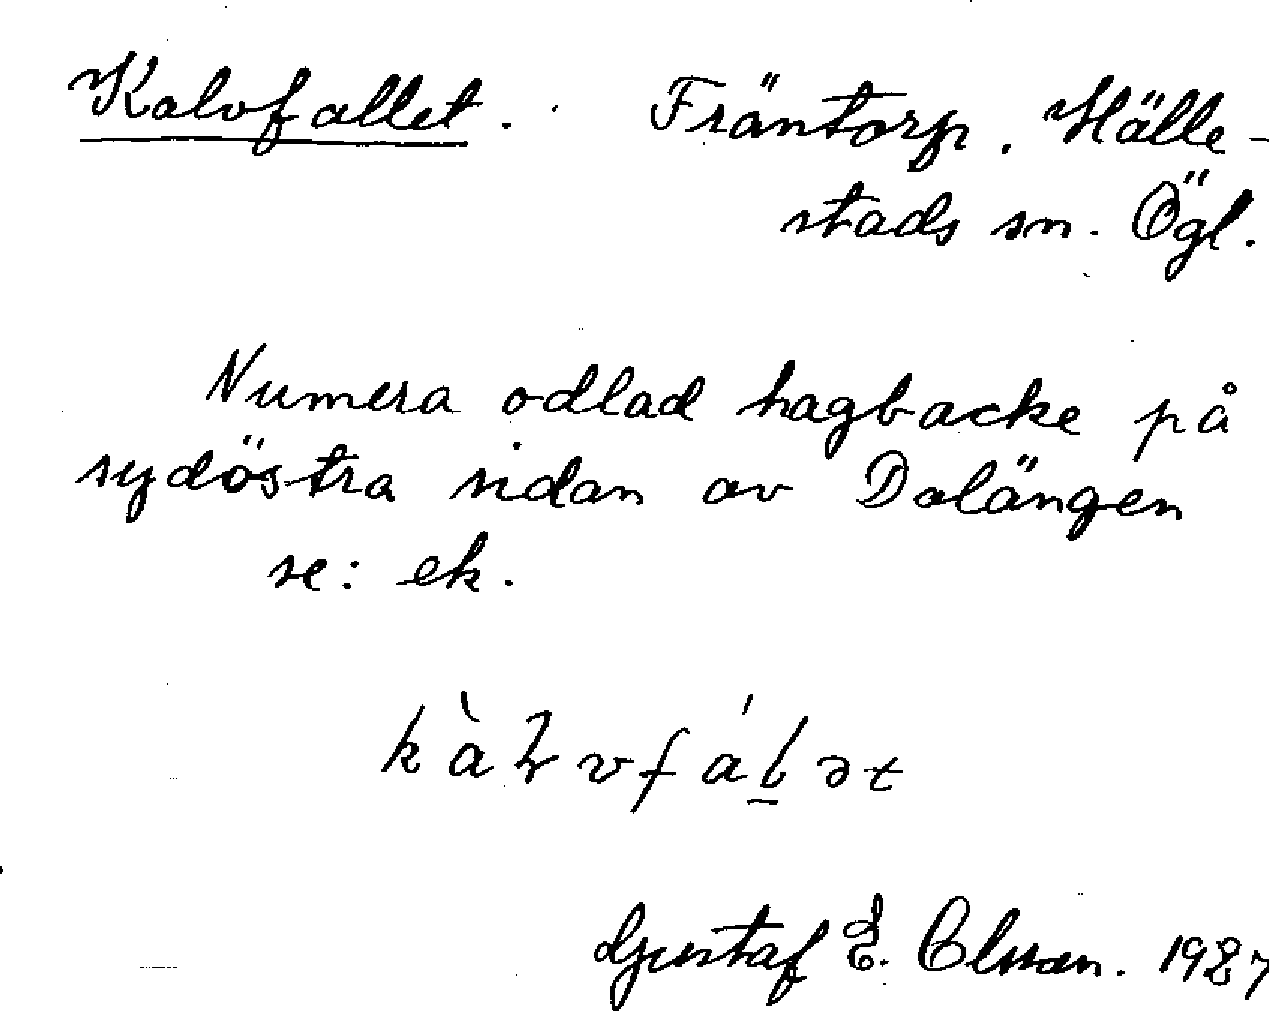 Kalvfallet. Fräntorp. Hälle-
stads sn. Ögl.
Numera odlad hagbacke på
sydöstra sidan av Dalängen
se: ek.
kàɫvfál̲ət
Gustaf E. Olsson. 1927